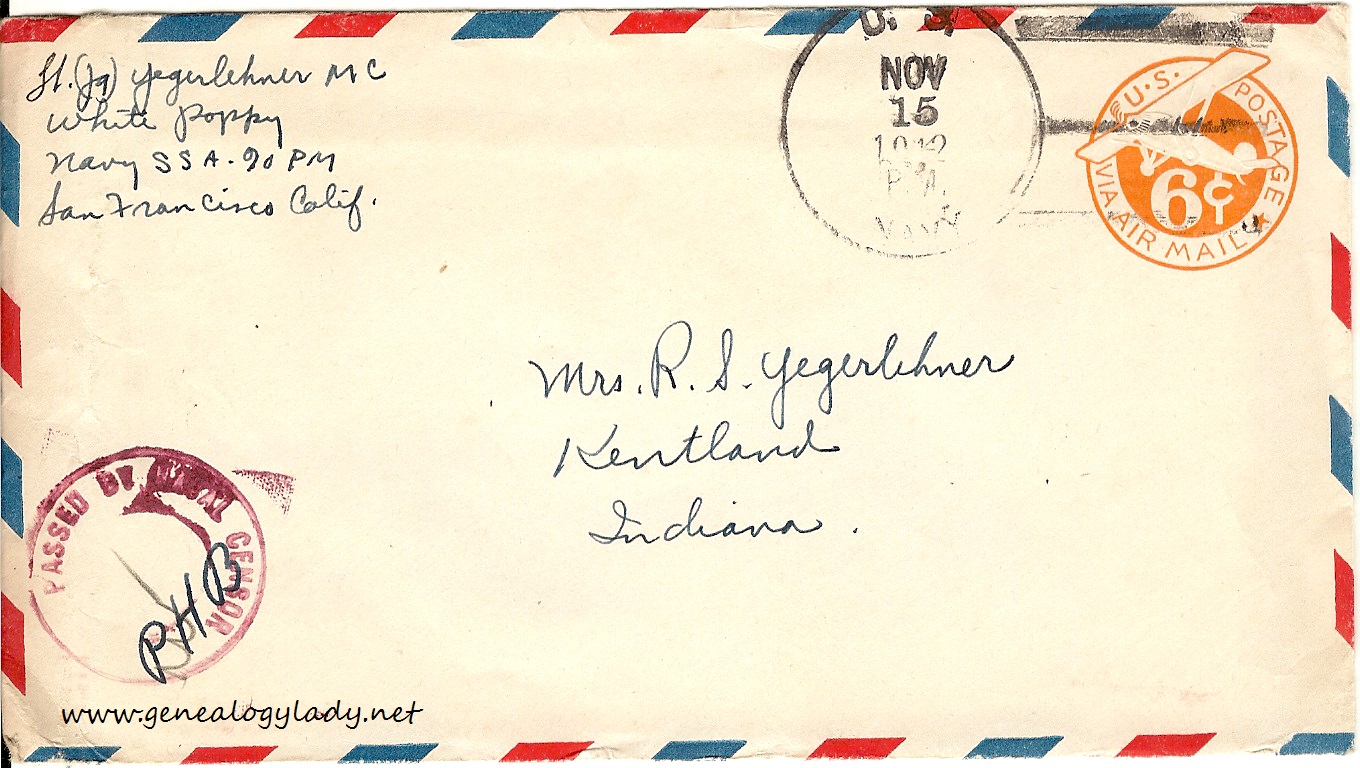 Lt. (Jg) Yegerlehner MC
White Poppy
Navy SSA-90 PM
San Francisco Calif.
U. S.
NOV
15
1942
P.M.
NAVY
U.S. POSTAGE
6¢
VIA AIR MAIL
Mrs. R. S. Yegerlehner
Kentland
Indiana.
PASSED BY NAVAL CENSOR
RHB
www.genealogylady.net